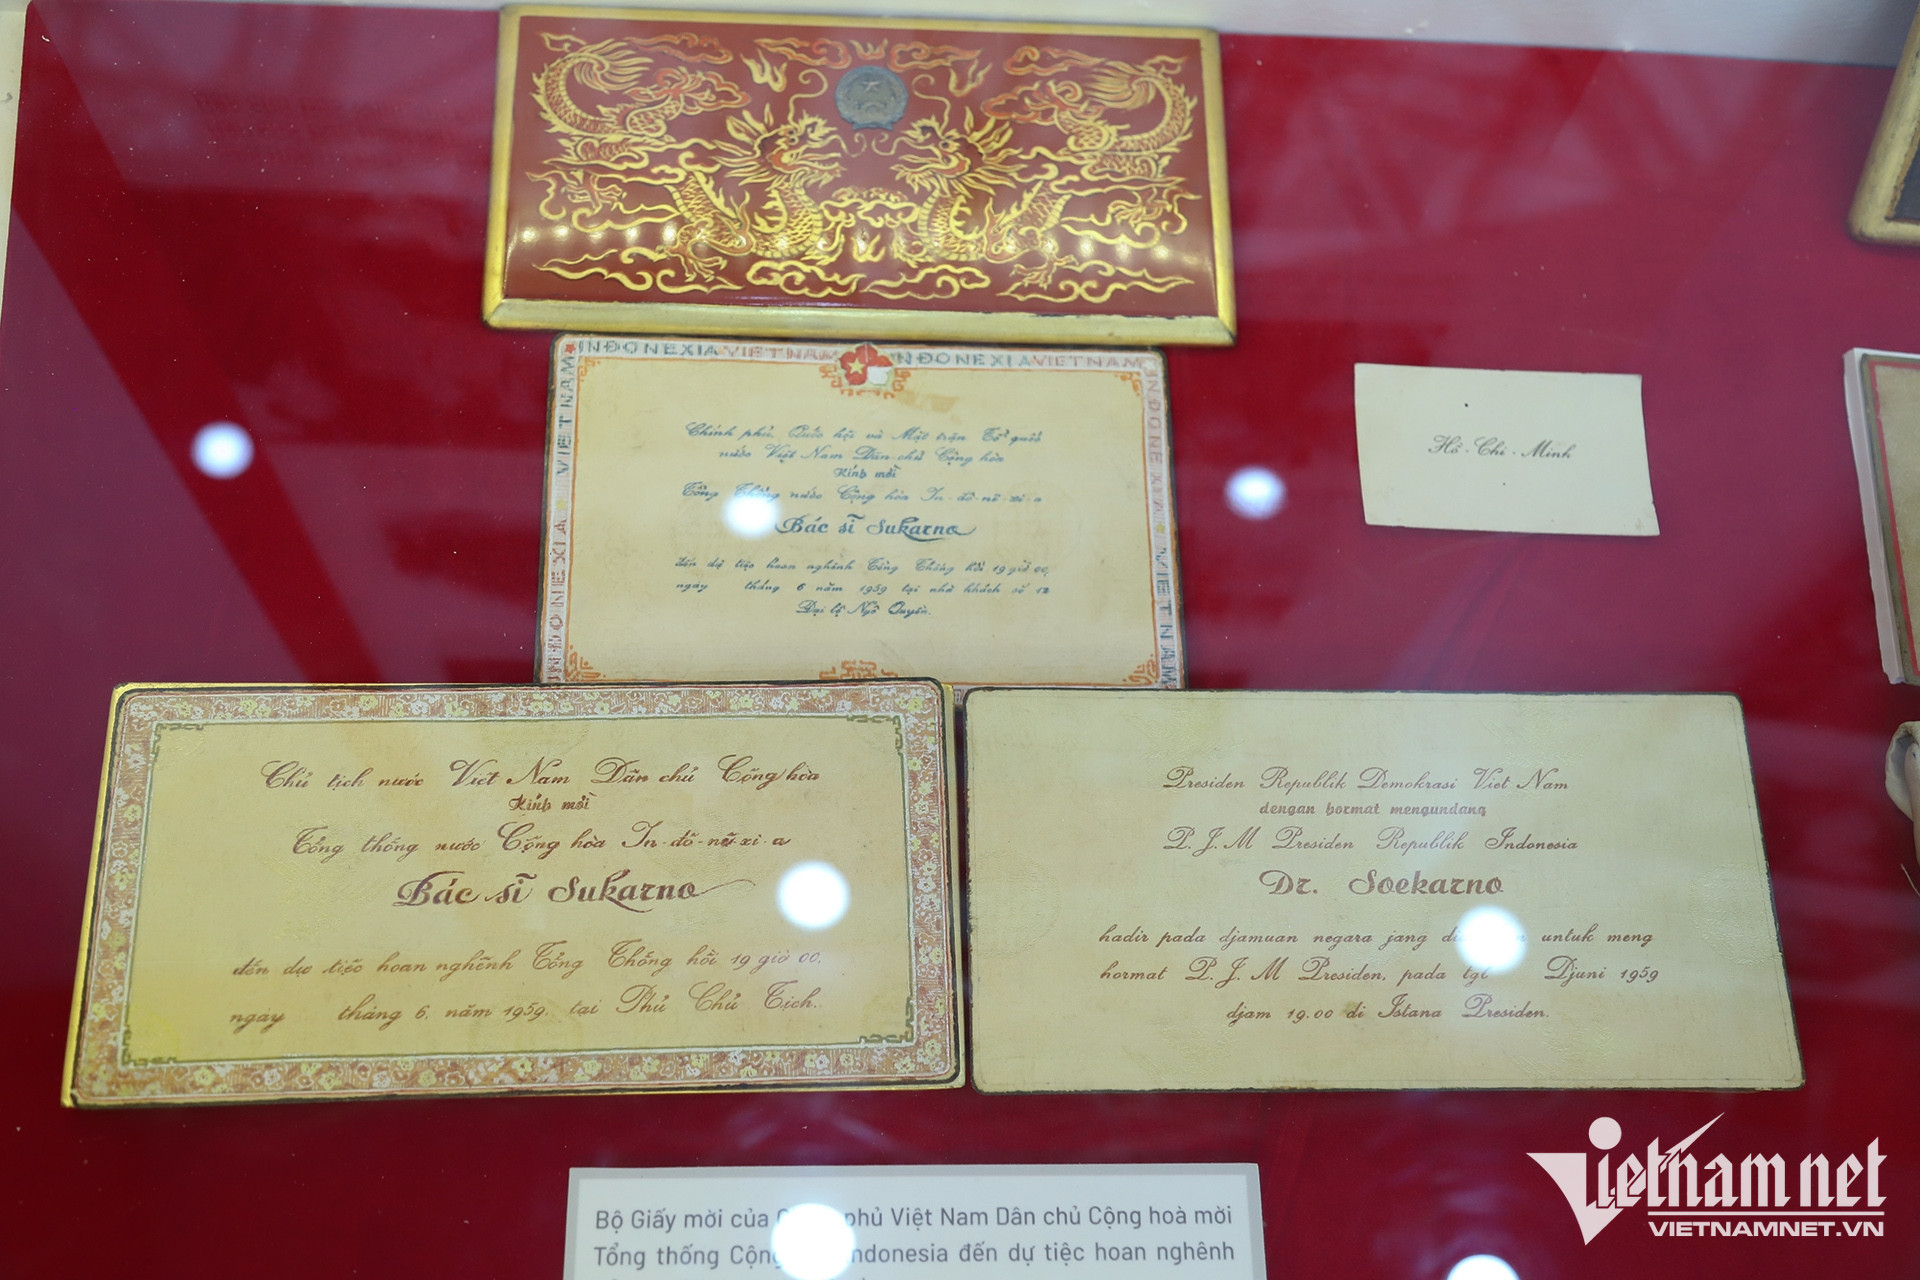 INDONEXIA VIETNAM INDONEXIA VIETNAM
Chính phủ, Quốc hội và Mặt trận Tổ quốc
nước Việt Nam Dân chủ Cộng hòa
Kính mời
Tổng Thống nước Cộng hòa In-đô-nê-xi-a
Bác sĩ Sukarno
đến dự tiệc hoan nghênh Tổng Thống hồi 19 giờ 00,
ngày tháng 6 năm 1959 tại nhà khách số 12
Đại lộ Ngô Quyền.
Hồ-Chi-Minh
Chủ tịch nước Việt Nam Dân chủ Cộng hòa
Kính mời
Tổng thống nước Cộng hòa In-đô-nê-xi-a
Bác sĩ Sukarno
đến dự tiệc hoan nghênh Tổng Thống hồi 19 giờ 00,
ngày tháng 6. năm 1959. tại Phủ Chủ Tịch.
Presiden Republik Demokrasi Viet Nam
dengan hormat mengundang
P.J.M Presiden Republik Indonesia
Dr. Soekarno
hadir pada djamuan negara jang untuk meng
hormat P.J.M Presiden, pada Djuni 1959
djam 19.00 di Istana Presiden.
Bộ Giấy mời của phủ Việt Nam Dân chủ Cộng hoà mời
Tổng thống Cộng Indonesia đến dự tiệc hoan nghênh
Vietnamnet
VIETNAMNET.VN